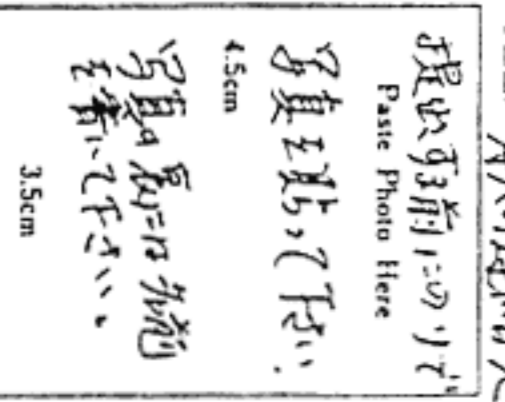 提出する前にのりで
Paste Photo Here
写真を貼って下さい.
4.5cm
写真の裏には名前
を書いて下さい。
3.5cm